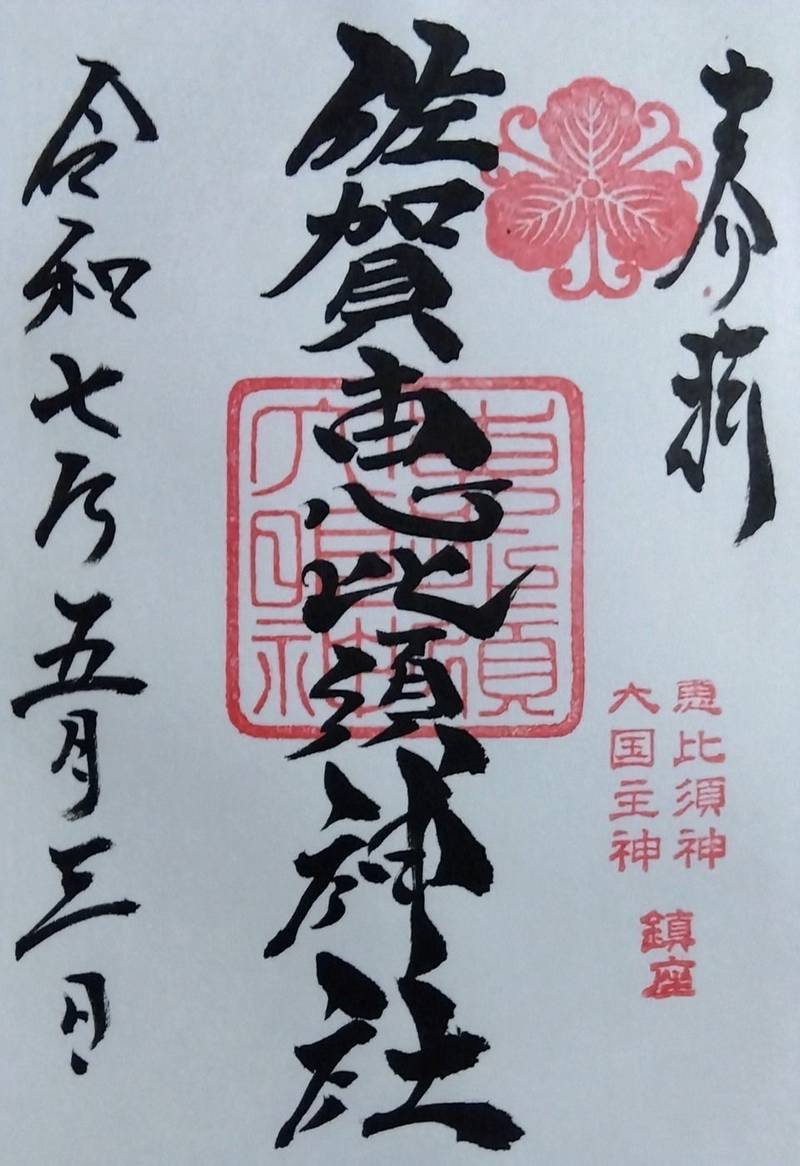 奉拝
恵比須神
大国主神
鎮座
佐賀恵比須神社
令和七年五月三日